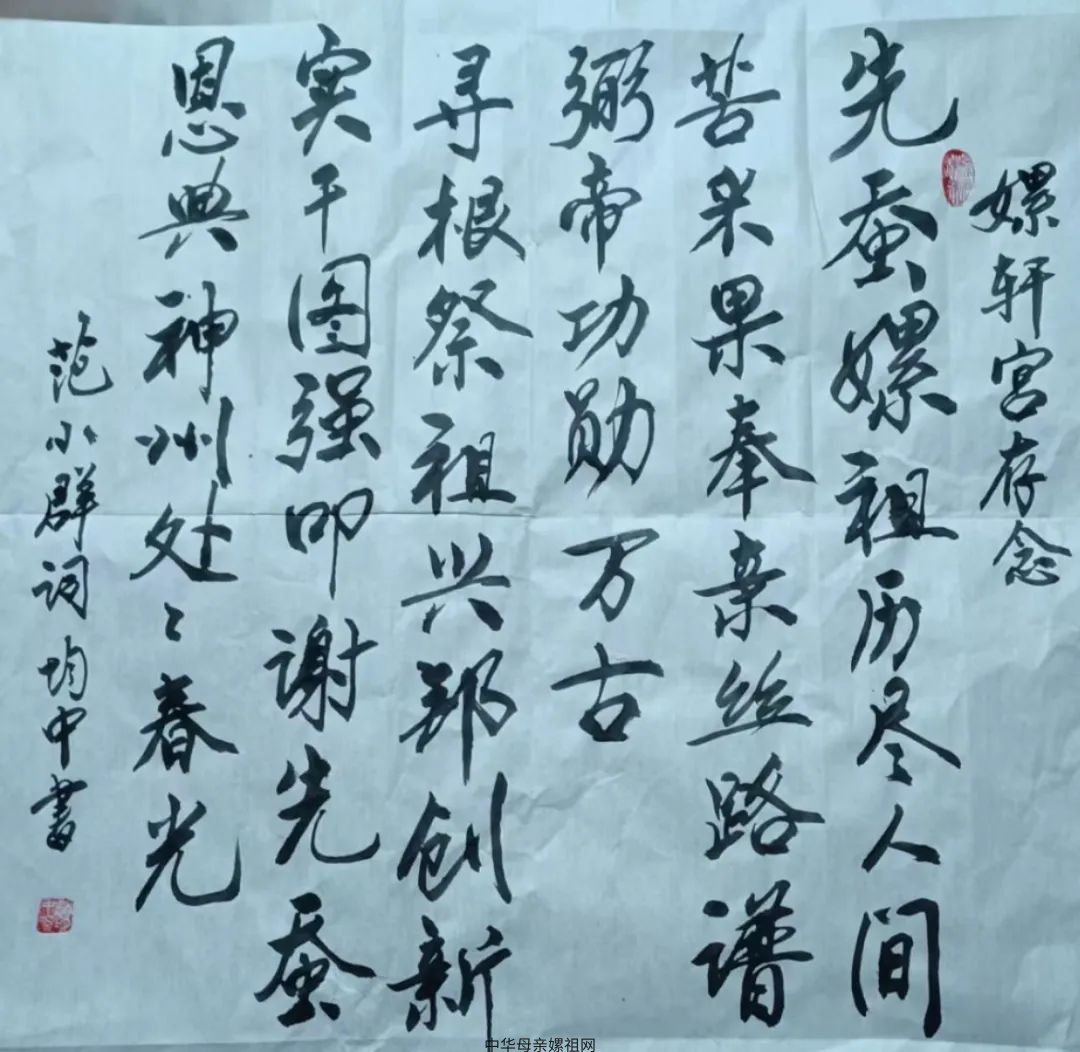 嫘轩宫存念
先蚕嫘祖历尽人间
苦采果奉亲丝路谱
弼帝功勋万古
寻根祭祖兴邦创新
实干图强叩谢先蚕
恩典神州处〻春光
范小群词均中書
中华母亲嫘祖网